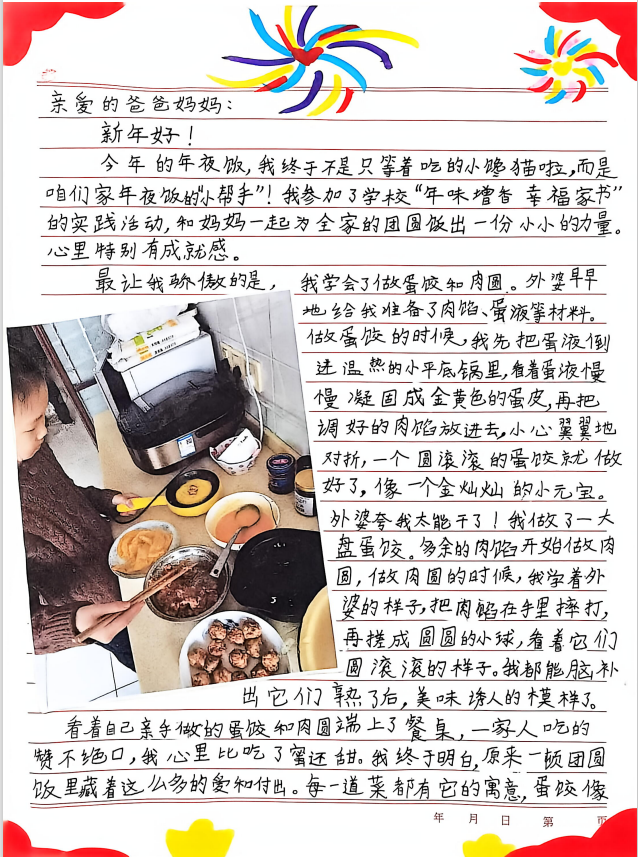 亲爱的爸爸妈妈：
新年好！
今年的年夜饭，我终于不是只等着吃的小馋猫啦，而是
咱们家年夜饭的“小帮手”！我参加了学校“年味增香 幸福家书”
的实践活动，和妈妈一起为全家的团圆饭出一份小小的力量。
心里特别有成就感。
最让我骄傲的是，我学会了做蛋饺和肉圆。外婆早早
地给我准备了肉馅、蛋液等材料。
做蛋饺的时候，我先把蛋液倒
进温热的小平底锅里，看着蛋液慢
慢凝固成金黄色的蛋皮，再把
调好的肉馅放进去，小心翼翼地
对折，一个圆滚滚的蛋饺就做
好了，像一个金灿灿的小元宝。
外婆夸我太能干了！我做了一大
盘蛋饺。多余的肉馅开始做肉
圆，做肉圆的时候，我学着外
婆的样子，把肉馅在手里摔打，
再搓成圆圆的小球，看着它们
圆滚滚的样子。我都能脑补
出它们熟了后，美味诱人的模样了。
看着自己亲手做的蛋饺和肉圆端上了餐桌，一家人吃的
赞不绝口，我心里比吃了蜜还甜。我终于明白，原来一顿团圆
饭里藏着这么多的爱和付出。每一道菜都有它的寓意，蛋饺像
年 月 日 第 页